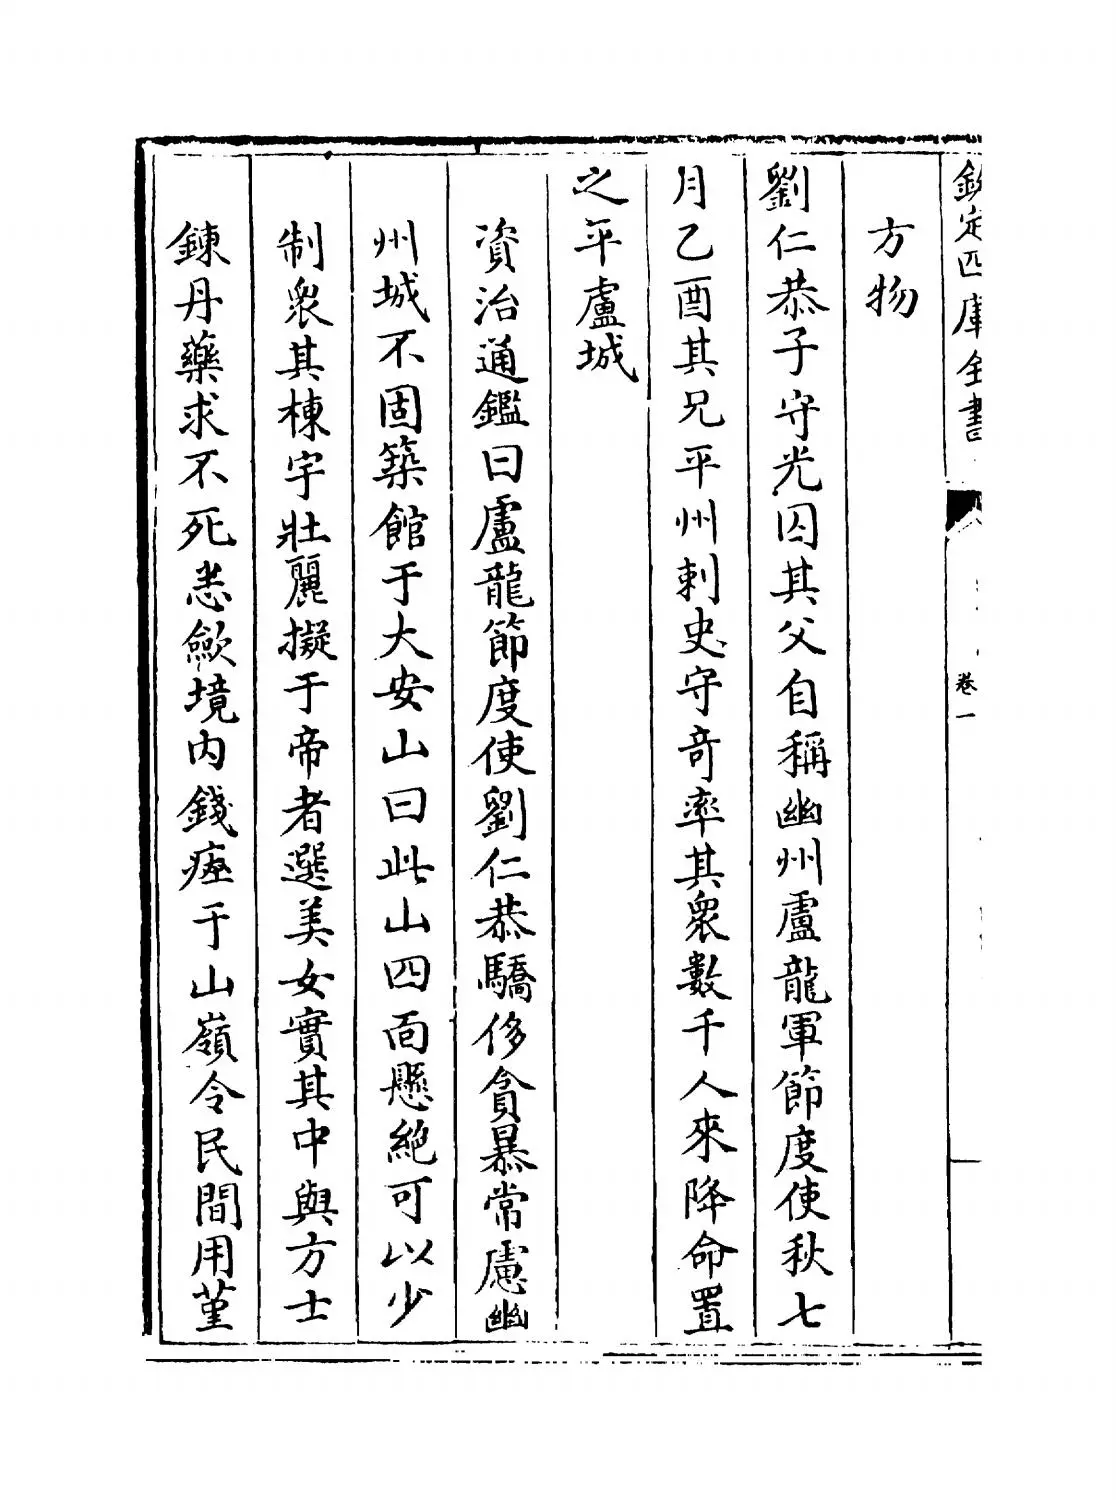 欽定四庫全書
卷一
方物
劉仁恭子守光囚其父自稱幽州盧龍軍節度使秋七
月乙酉其兄平州刺史守奇率其衆數千人來降命置
之平盧城
資治通鑑曰盧龍節度使劉仁恭驕侈貪暴常慮幽
州城不固築館于大安山曰此山四面懸絶可以少
制衆其棟宇壯麗擬于帝者選美女實其中與方士
鍊丹藥求不死悉歛境内錢瘞于山嶺令民間用堇